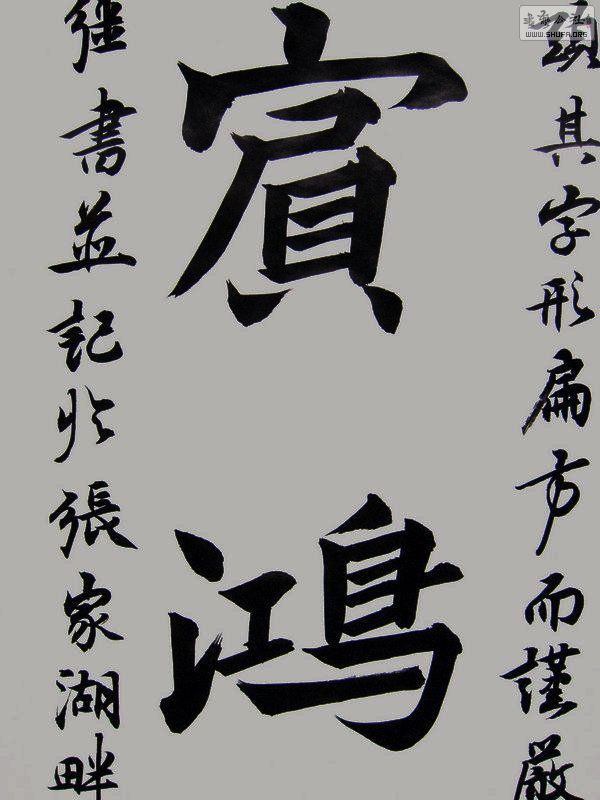 其字形扁方而謹嚴
賓鴻
繼書並記於張家湖畔
书法公社
WWW.SHUFA.ORG